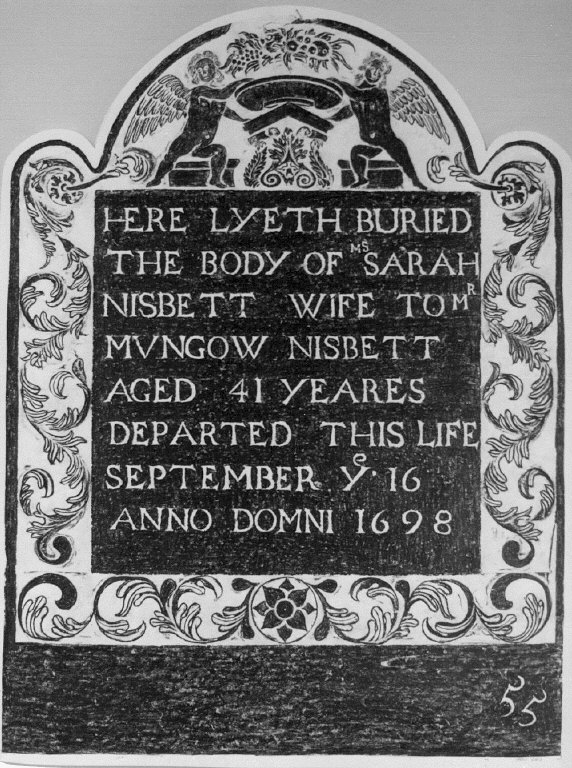 HERE LYETH BURIED
THE BODY OF MS SARAH
NISBETT WIFE TO MR
MVNGOW NISBETT
AGED 41 YEARES
DEPARTED THIS LIFE
SEPTEMBER Ye. 16
ANNO DOMNI 1698
55